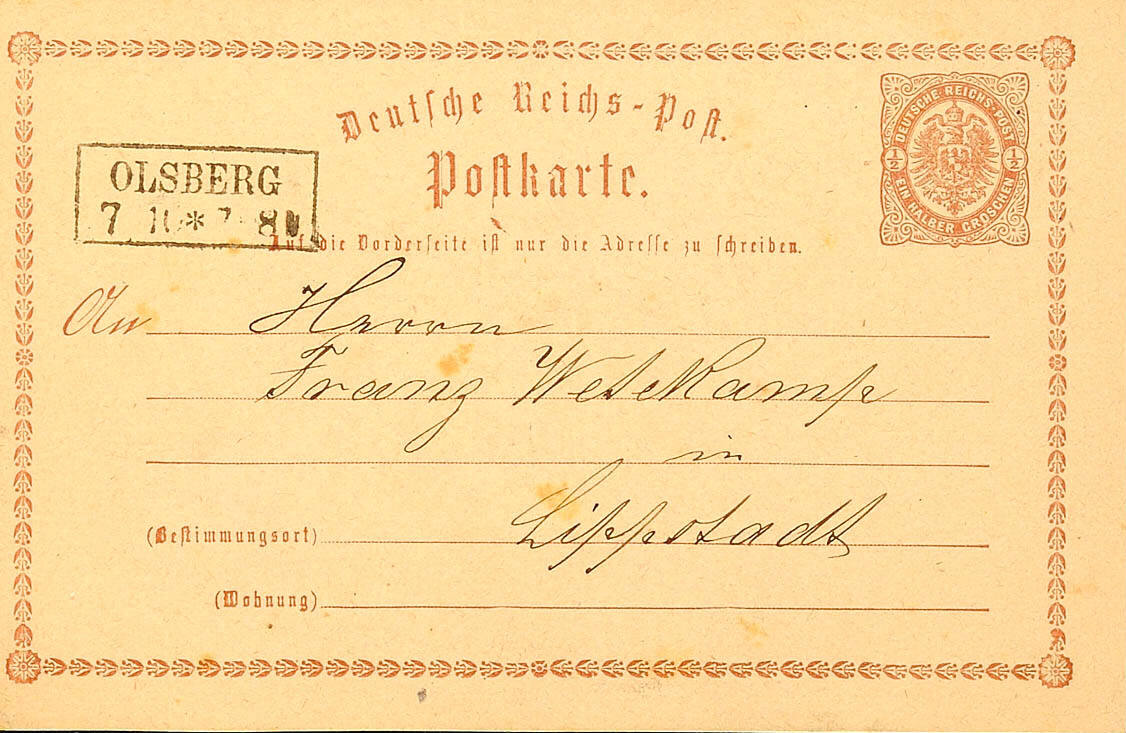 Deutsche Reichs-Post.
Postkarte.
DEUTSCHE REICHS-POST
½ ½
EIN HALBER GROSCHEN
OLSBERG
7 10 * 7-8
Auf die Vorderseite ist nur die Adresse zu schreiben.
An Herrn
Franz Wesekamp
in
(Bestimmungsort) Lippstadt
(Wohnung)